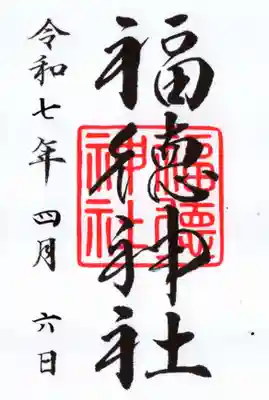 福徳神社
福徳神社
令和七年 四月 六日